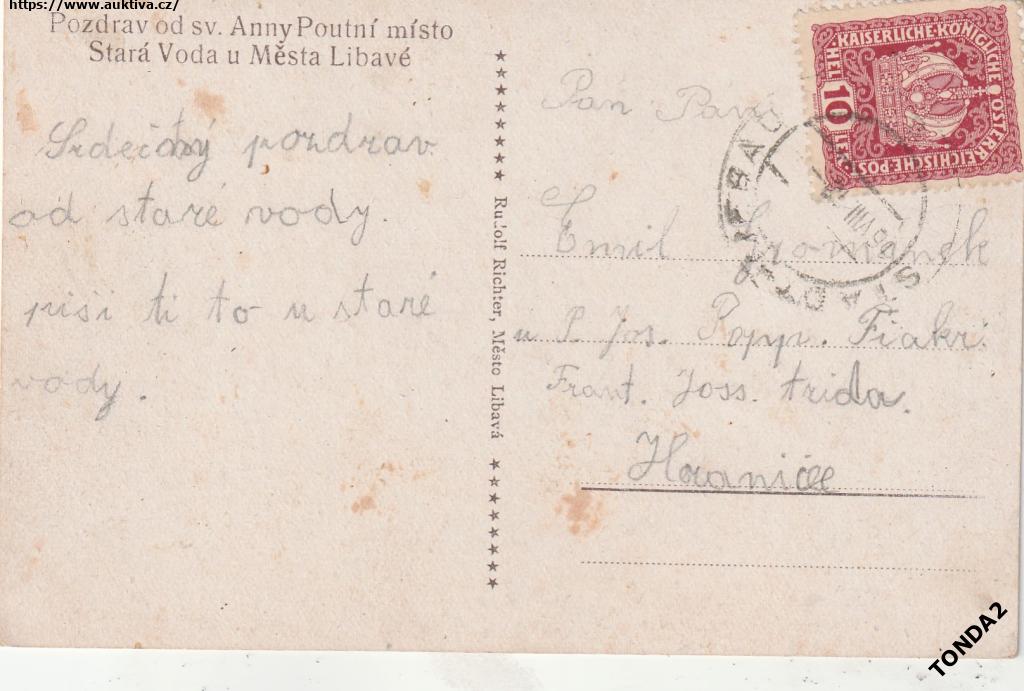 https://www.auktiva.cz/
Pozdrav od sv. Anny Poutní místo
Stará Voda u Města Libavé
Srdečný pozdrav
od staré vody.
píši ti to u staré
vody.
★★★★★★★★★ Rudolf Richter, Město Libavá ★★★★★★★★
KAISERLICHE·KÖNIGLICHE ÖSTERREICHISCHE·POST
HELLER
10
STADT LIEBAU
VIII
Pan Paní
Emil
u P. Jos. Popp. Fiakr.
Frant. Joss. trida.
Hranice
TONDA2